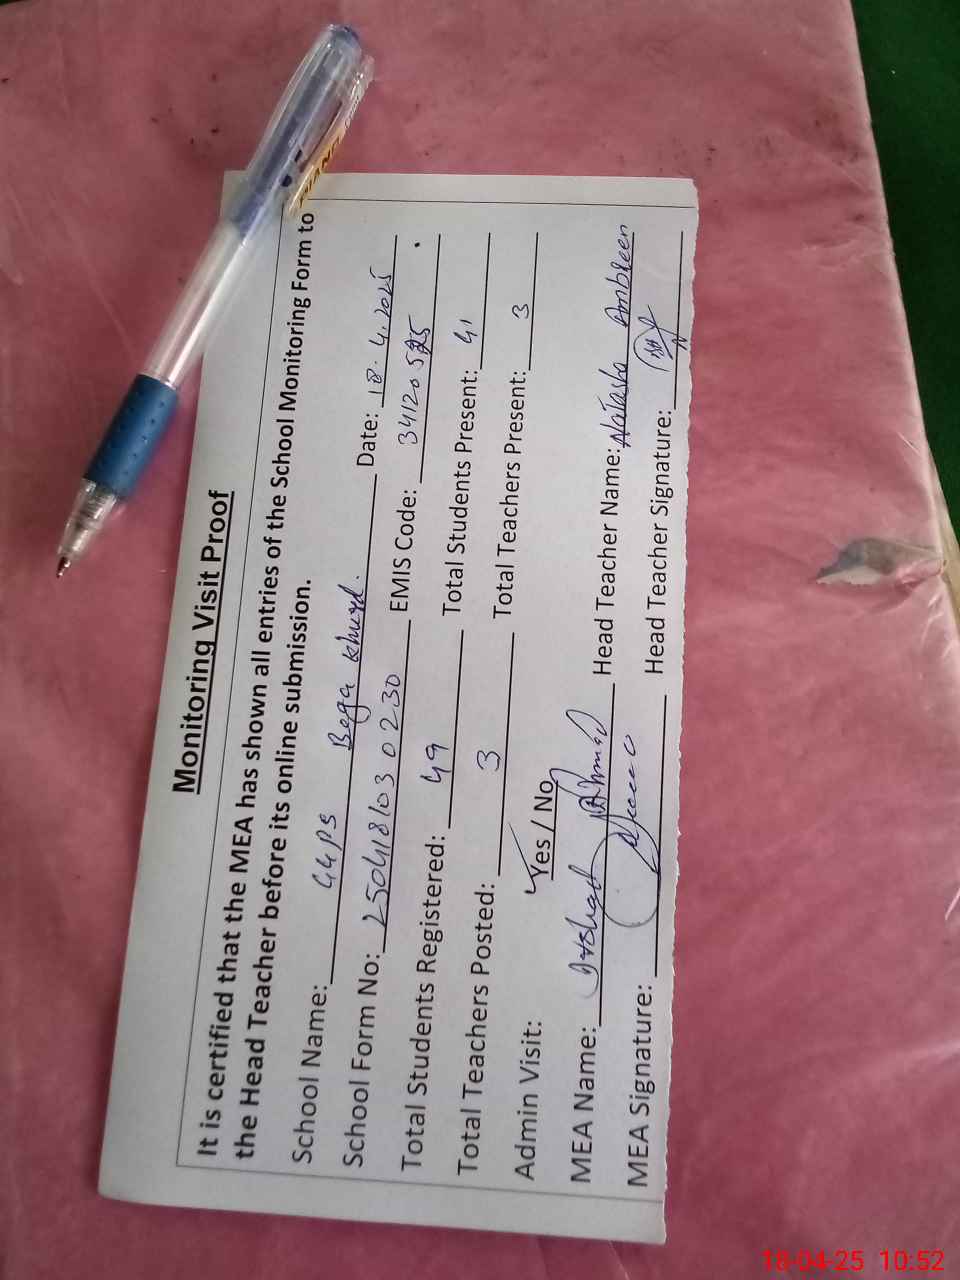 Monitoring Visit Proof
It is certified that the MEA has shown all entries of the School Monitoring Form to
the Head Teacher before its online submission.
School Name: GGPS Bega Khurd. Date: 18.4.2025
School Form No: 250418103 0230 EMIS Code: 34120525
Total Students Registered: 49 Total Students Present: 41
Total Teachers Posted: 3 Total Teachers Present: 3
Admin Visit: Yes / No
MEA Name: Ahmad Head Teacher Name: Natasha Ambreen
MEA Signature: Head Teacher Signature:
PIANO
18-04-25 10:52